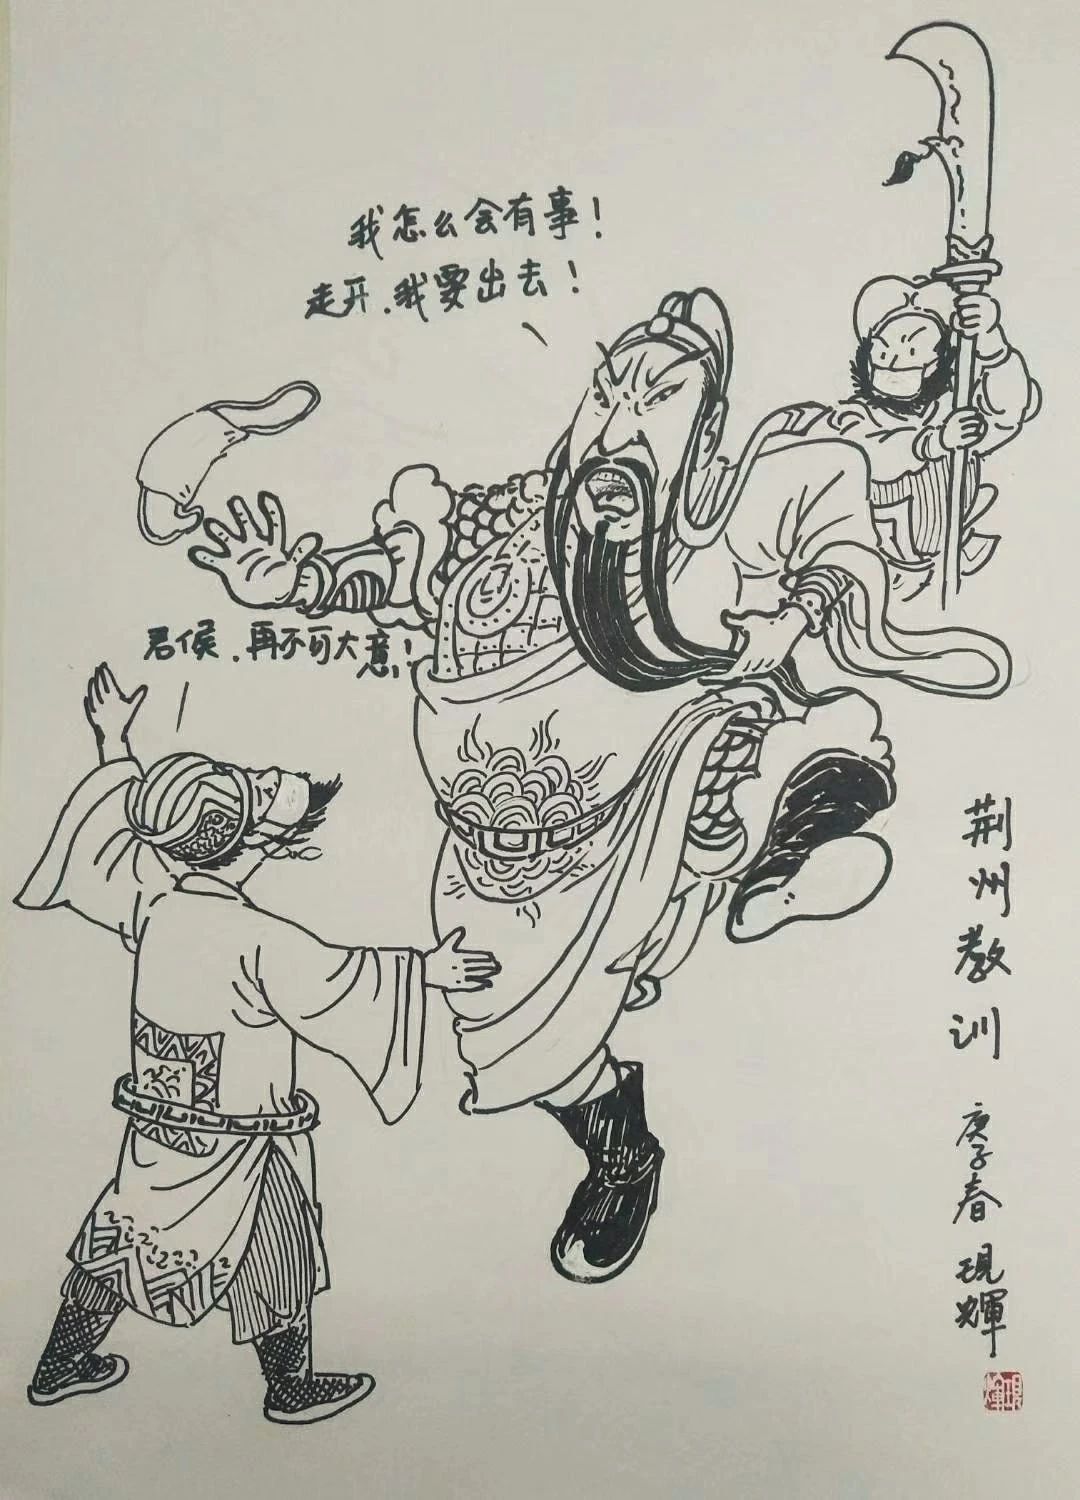 我怎么会有事！
走开.我要出去！
君侯.再不可大意！
荆州教训
庚子春
现辉